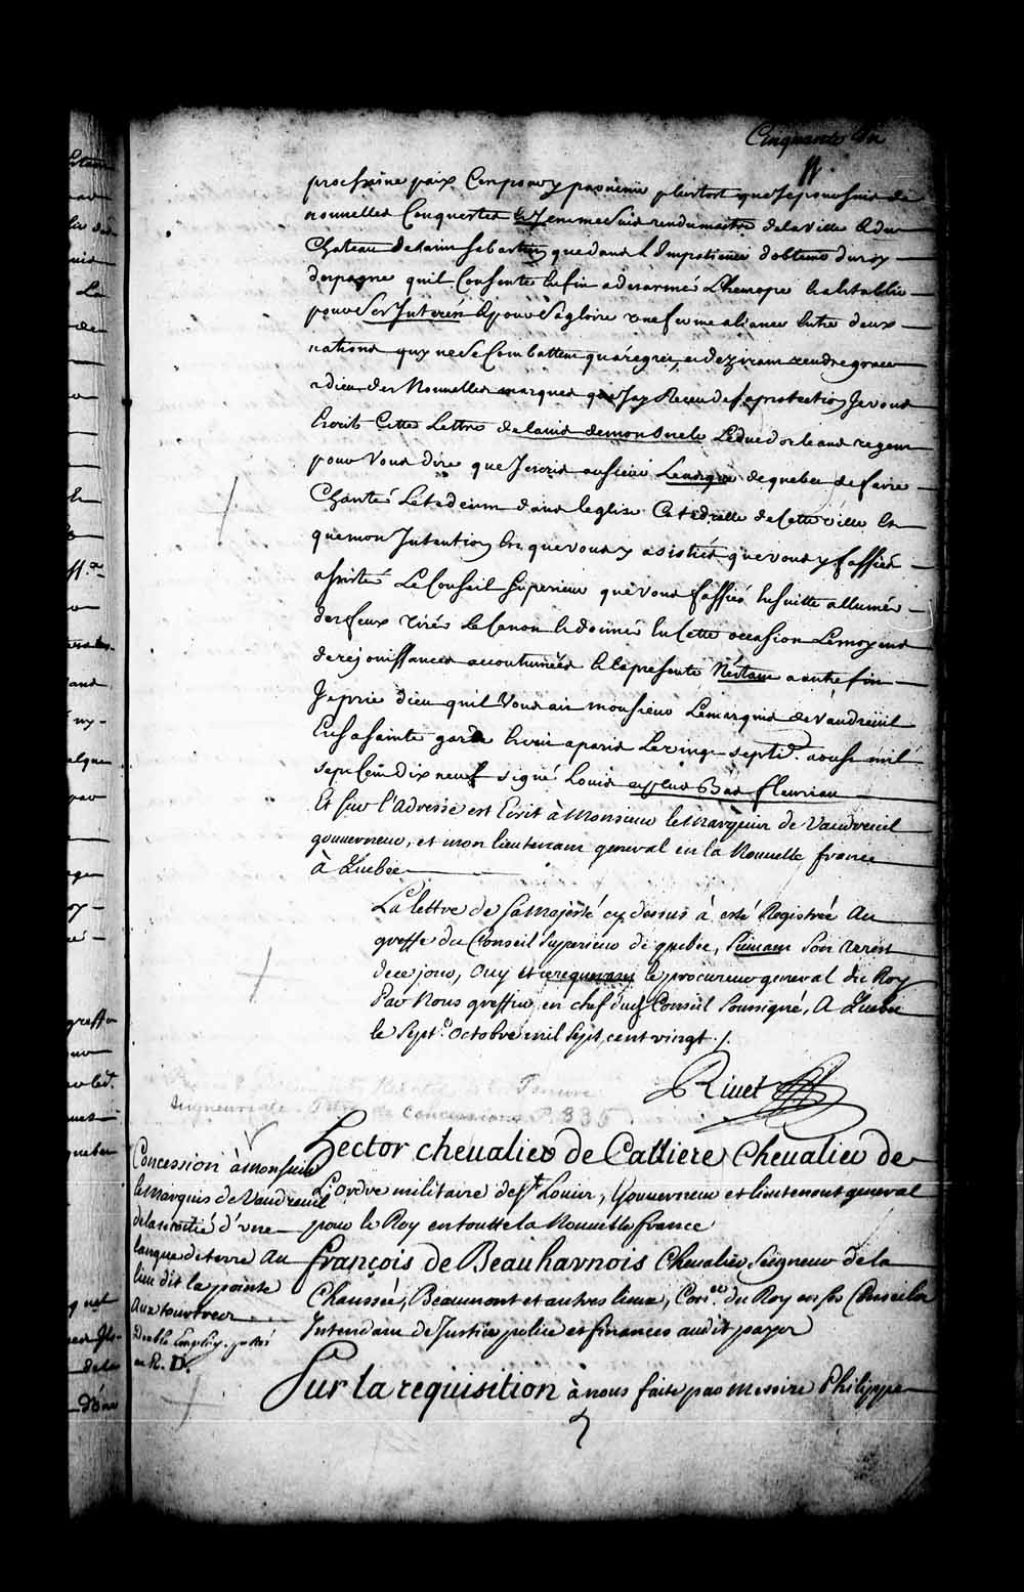 Cinquante
prochaine paix l'on pouvoy parvenir plustost que je poursuis de
nouvelles Conquestes je me suis rendu maistre de la ville & du
Chateau de saint sebastien que dans l'Impatience d'obtenir du roy
d'espagne qu'il Consente enfin a desarmé L'heurope & a establir
pour Ses Interets & pour Sa gloire une ferme aliance Entre deux
nations quy ne Se Combattent qu'aregret, et deziram rendre grace
a dieu des Nouvelles marques que Jay Receu de sa protection Je vous
Ecrits Cette Lettre de lavis de mon oncle Le duc dorleans regent
pour Vous dire que Jecris au sieur Leveque de quebec de faire
Chanté Le te deum dans leglise Catedralle de Cette ville Et
que mon Intention Est que vous y asistiés que vous y fassiés
assisté Le Conseil Superieur que vous fassiés Ensuitte allumér
des feux tirér Le Canon & donnér En Cette occasion Les moyens
de rejouissances accoutumées & la presente N'étant a autre fin
Je prie dieu qu'il Vous ait monsieur Le marquis de Vaudreüil
En sa sainte garde Ecrit a paris Le vingt septie. aoust mil
sept Cent Dix neuf signé Louis et plus Bas fleuriau
Et sur l'adresse est Ecrit à Monsieur le Marquis de Vaudreuil
gouverneur, et mon lieutenant general en la Nouvelle france
à Quebec
La lettre de Sa Majesté cy dessus à esté Registrée Au
greffe du Conseil Superieur de quebec, Suivant Son arrest
de ce jour, Ouy et ce requerant le procureur general du Roy
Par Nous greffier en chef dud. Conseil Soussigné, A Quebec
le Septe. Octobre mil Sept, cent vingt ./.
Rivet
Tenure
Seigneuriale. Titres de Concessions P. 335
Concession à Monsieur
le Marquis de Vaudreuil
de la moitié d'une
langue de terre Au
lieu dit la pointe
Aux tourtres
Double Employ.
en R. D.
Hector chevalier de Calliere Chevalier de
L'ordre militaire de St. Louis, Gouverneur et lieutenant general
pour le Roy en toutte la Nouvelle france
françois de Beauharnois Chevalier Seigneur de la
Chaussée, Beaumont et autres lieux, Coner. du Roy en ses Conseils
Intendant de Justice police et finances audit payer
Sur la requisition à nous faite par Messire Philippe